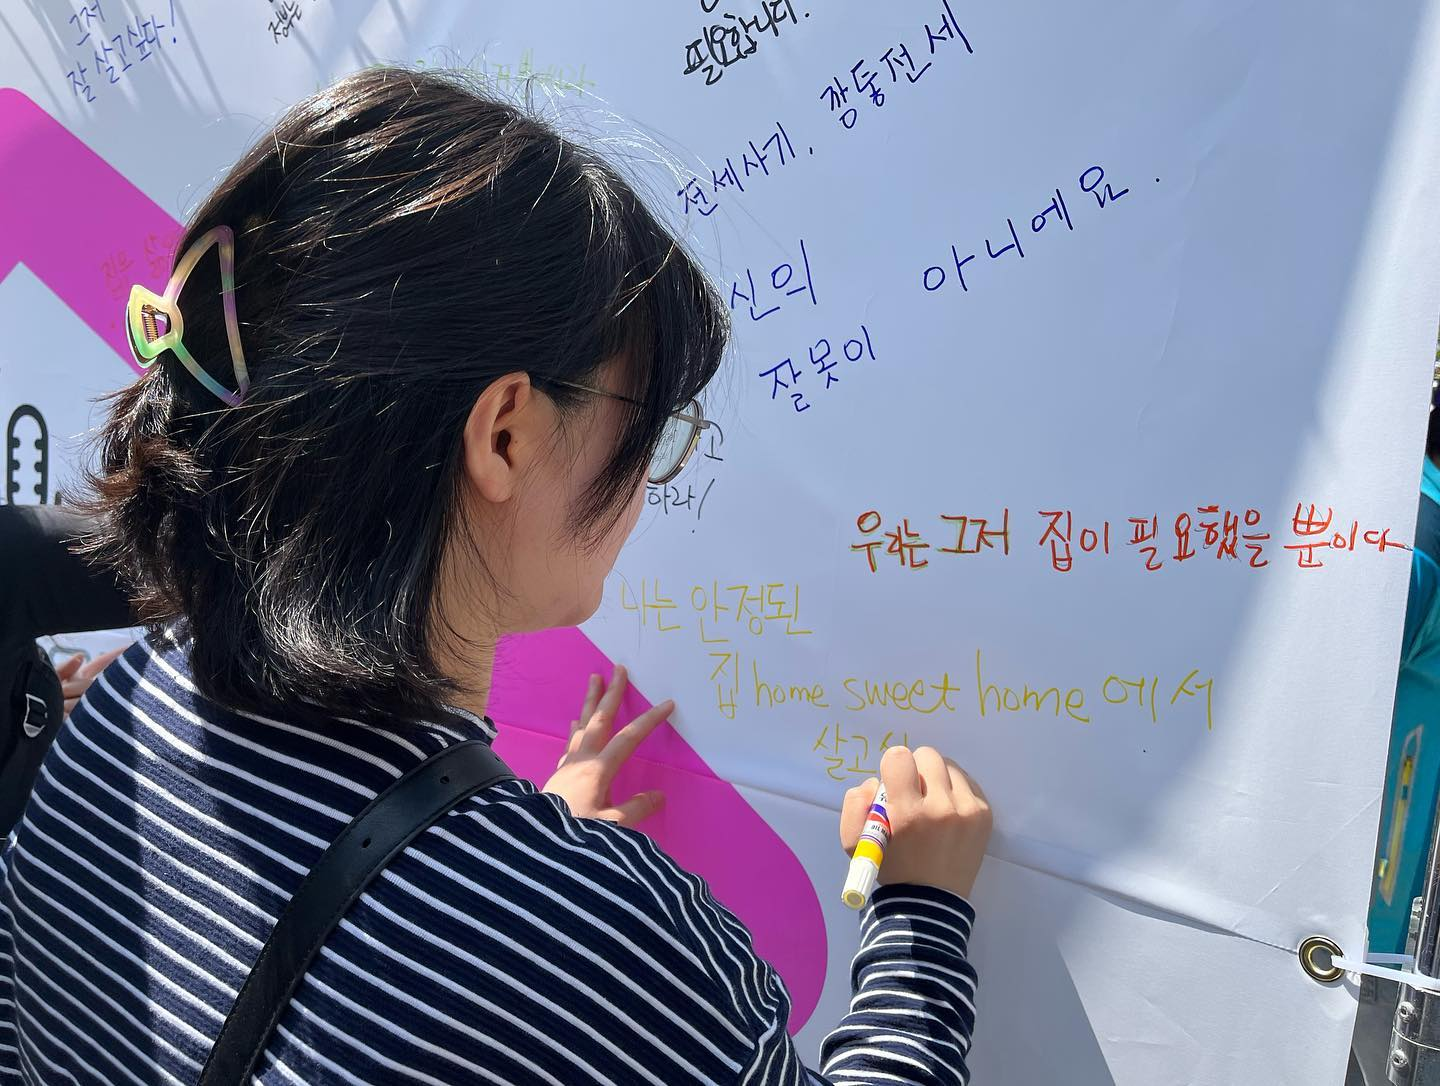 그저
잘 살고싶다!
필요합니다.
전세사기, 깡통전세
신의
잘못이
아니에요.
고
하라!
우리는 그저 집이 필요했을 뿐이다
나는 안정된
집 home sweet home 에서
살고싶